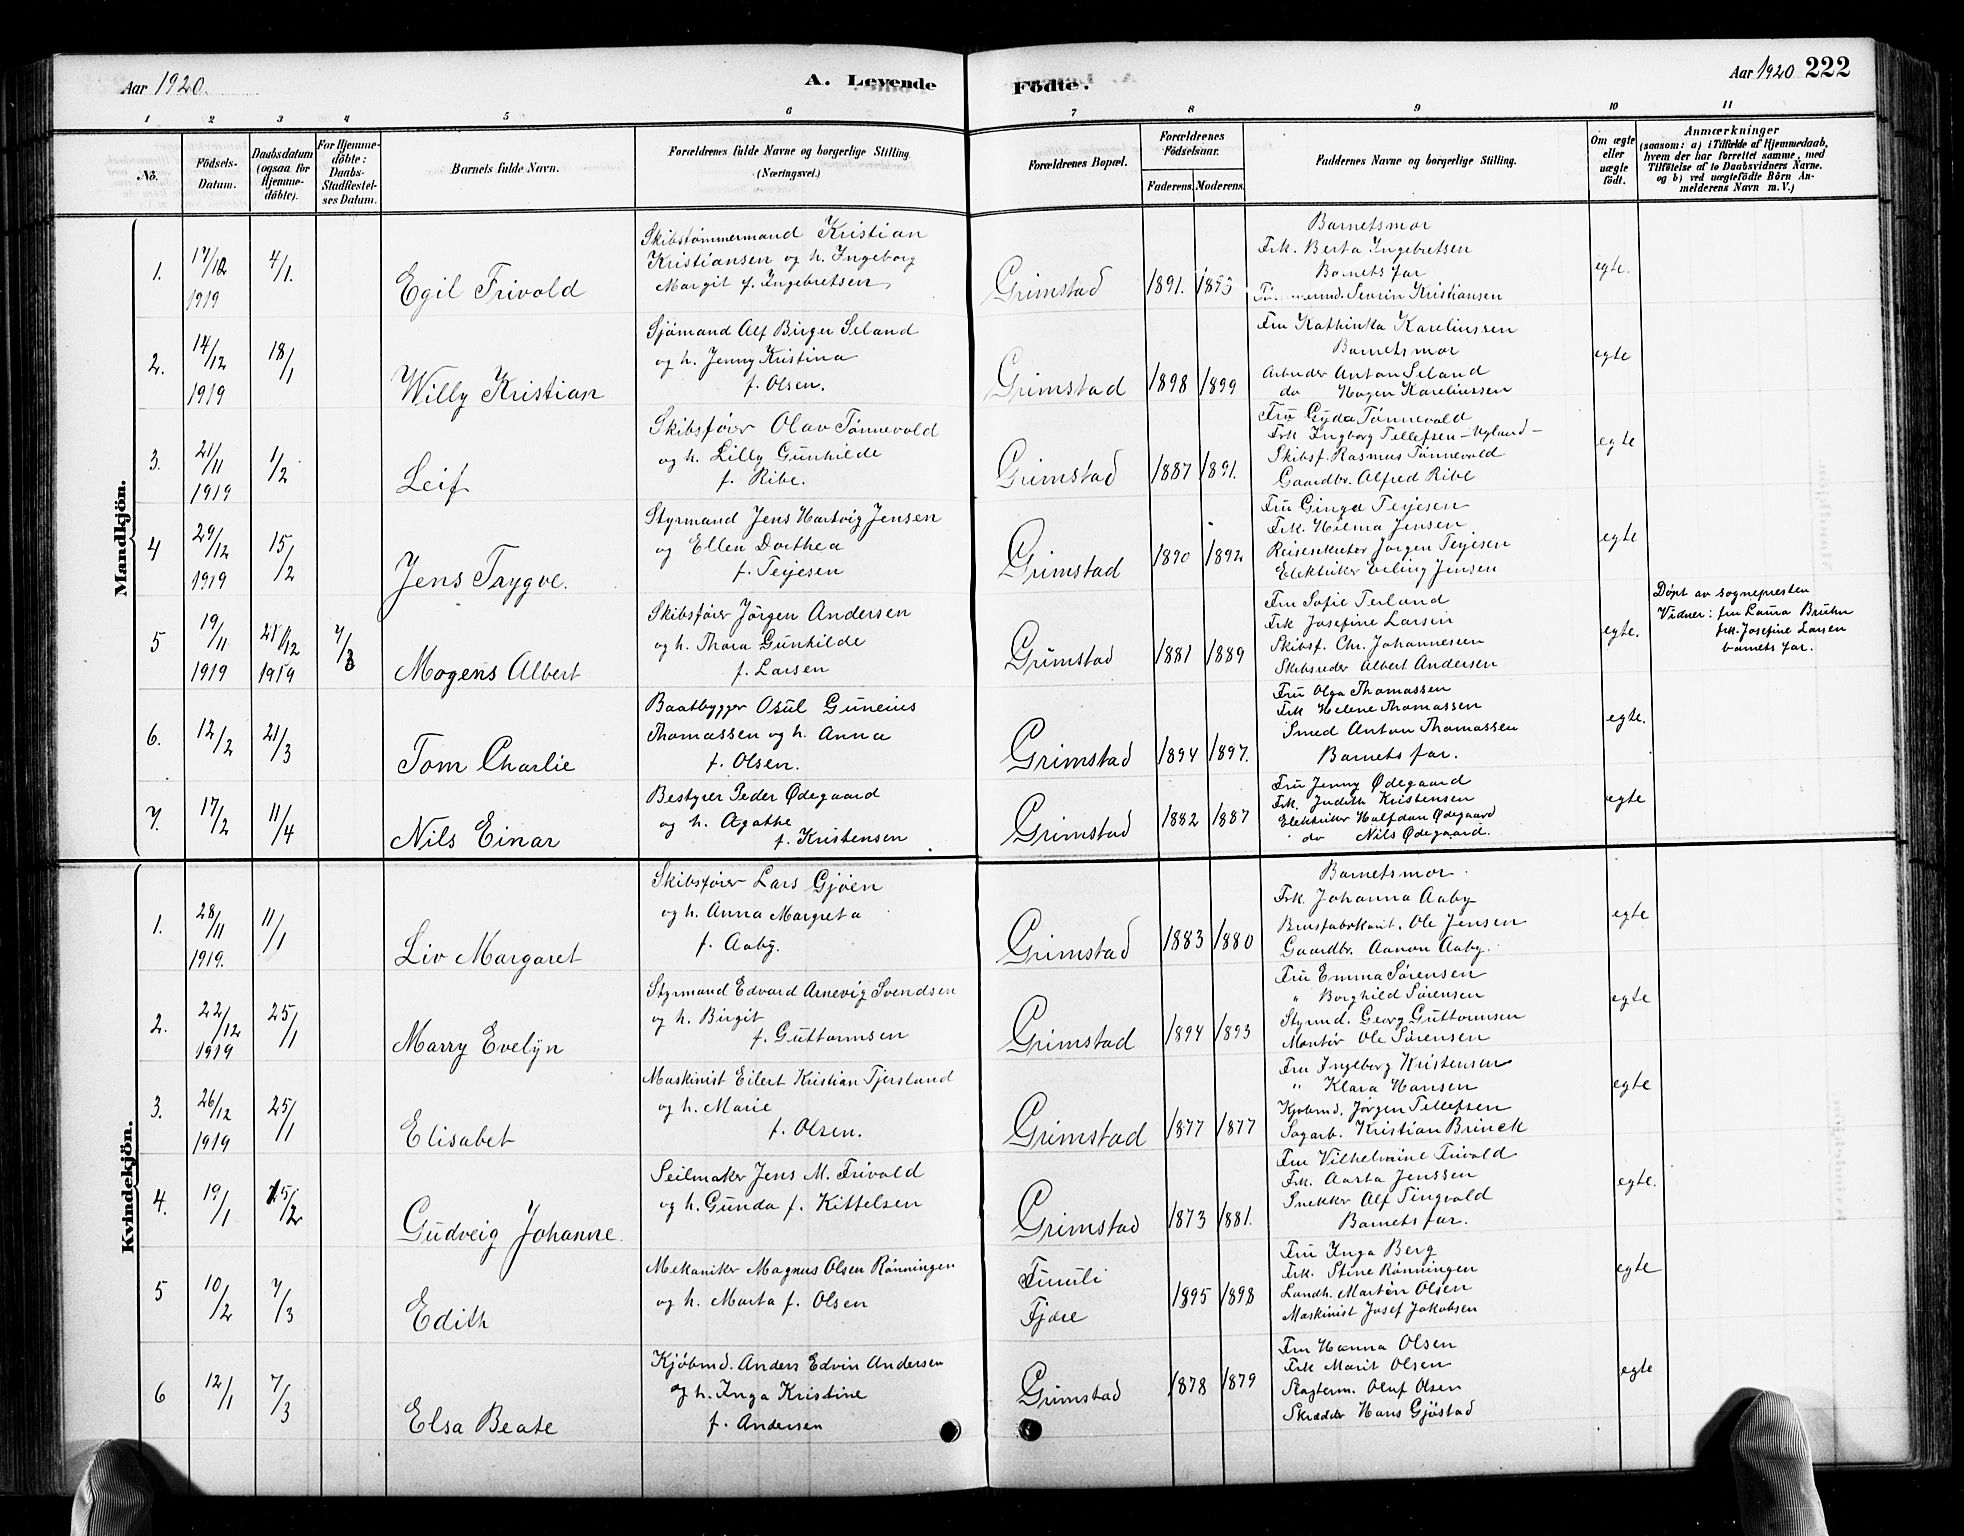 Aar 1920.
A. Levende
Födte.
Aar 1920 222
1 2 3 4 5 6 7 8 9 10 11
No.
Födsels-Datum.
Daabsdatum (ogsaa for Hjemmedöbte).
For Hjemmedöbte: Daabs-Stadfæstelses Datum.
Barnets fulde Navn.
Forældrenes fulde Navne og borgerlige Stilling. (Næringsvei.)
Forældrenes Bopæl.
Forældrenes Födselsaar.
Faderens. Moderens.
Faddernes Navne og borgerlige Stilling.
Om ægte eller uægte födt.
Anmærkninger
(saasom: a) i Tilfælde af Hjemmedaab, hvem der har forrettet samme, med Tilföielse af to Daabsvidners Navne. og b) ved uægtefödte Börn Anmelderens Navn m. V.)
Mandkjön.
1. 17/12 1919 4/1. Egil Frivold
Skibstømmermand Kristian
Kristiansen og h. Ingeborg
Margit f. Ingebretsen
Grimstad 1891. 1893
Barnetsmor
Frk. Berta Ingebretsen
Barnets far
Sevrin Kristiansen
egte.
2. 14/12 1919 18/1 Willy Kristian
Sjømand Alf Birger Seland
og h. Jenny Kristina
f. Olsen.
Grimstad 1898 1899
Fru Kathinka Kareliussen
Barnetsmor
Arbeider Anton Seland
do Hagen Kareliussen
egte
3. 21/11 1919 1/2 Leif
Skibsfører Olav Tønnevold
og h. Lilly Gunhilde
f. Ribe.
Grimstad 1887 1891.
Fru Gyda Tønnevold
Frk Ingborg Tellefsen - Nyland -
Skibsf. Rasmus Tønnevold
Gaardbr. Alfred Ribe
egte
4 29/12 1919 15/2 Jens Trygve.
Styrmand Jens Hartvig Jensen
og Ellen Dorthea
f. Terjesen
Grimstad 1890 1892
Fru Ginga Terjesen
Frk. Hilma Jensen
Jørgen Terjesen
Elektriker Erling Jensen
egte
5 19/11 1919 21/12 1919 7/3 Mogens Albert
Skibsfører Jørgen Andersen
og h. Thora Gunhilde
f. Larsen
Grimstad 1881 1889
Fru Sofie Terland
Frk Josefine Larsen
Skibsf. Chr. Johannesen
Skibsreder Albert Andersen
egte.
Døpt av sognepresten
Vidner: fru Laura Bruhn
frk. Josefine Larsen
barnets far.
6. 12/2 21/3 Tom Charlie
Baatbygger Osul Guneius
Thomassen og h. Anna
f. Olsen.
Grimstad 1894 1897.
Fru Olga Thomassen
Frk Helene Thomassen
Smed Anton Thomassen
Barnets far.
egte.
7. 17/2 11/4 Nils Einar
Bestyrer Peder Ødegaard
og h. Agathe
f. Kristensen
Grimstad 1882 1887
Fru Jenny Ødegaard
Frk. Judith Kristensen
Elektriker Halfdan Ødegaard
do Nils Ødegaard.
egte
Kvindekjön.
1. 28/11 1919. 11/1 Liv Margaret
Skibsfører Lars Gjøen
og h. Anna Margreta
f. Aaby.
Grimstad 1883 1880
Barnetsmor.
Frk. Johanna Aaby
Brusfabrikant. Ole Jensen
Gaardbr. Aanon Aaby.
egte
2. 22/12 1919 25/1 Marry Evelyn
Styrmand Edvard Arnevig Svendsen
og h. Birgit
f. Guttormsen
Grimstad 1894 1893
Fru Emma Sørensen
" Borghild Sørensen
Styrmd. Georg Guttormsen
Montør Ole Sørensen
egte
3. 26/12 1919 25/1 Elisabet
Maskinist Eilert Kristian Tjersland
og h. Marie
f. Olsen.
Grimstad 1877 1877
Fru Ingeborg Kristensen
" Klara Hansen
Kjøbmd. Jørgen Tellefsen
Sagarb. Kristian Brinck
egte
4. 19/1 15/2 Gudveig Johanne.
Seilmaker Jens M. Frivold
og h. Gunda f. Kittelsen
Grimstad 1873 1881.
Fru Vilhelmine Frivold
Frk. Aarta Jenssen
Snekker Alf Tingvold
Barnets far.
egte.
5 10/2 7/3 Edith
Mekaniker Magnus Olsen Rønningen
og h. Marta f. Olsen
Fjære 1895 1898
Fru Inga Berg
Frk. Stine Rønningen
Landh. Martin Olsen
Maskinist Josef Jakobsen
egte
6 12/1 7/3 Elsa Beate
Kjøbmd. Anders Edvin Andersen
og h. Inga Kristine
f. Andersen
Grimstad 1878 1879
Fru Hanna Olsen
Frk Marit Olsen
Slagterm. Oluf Olsen
Skrædder Hans Gjøstad
egte